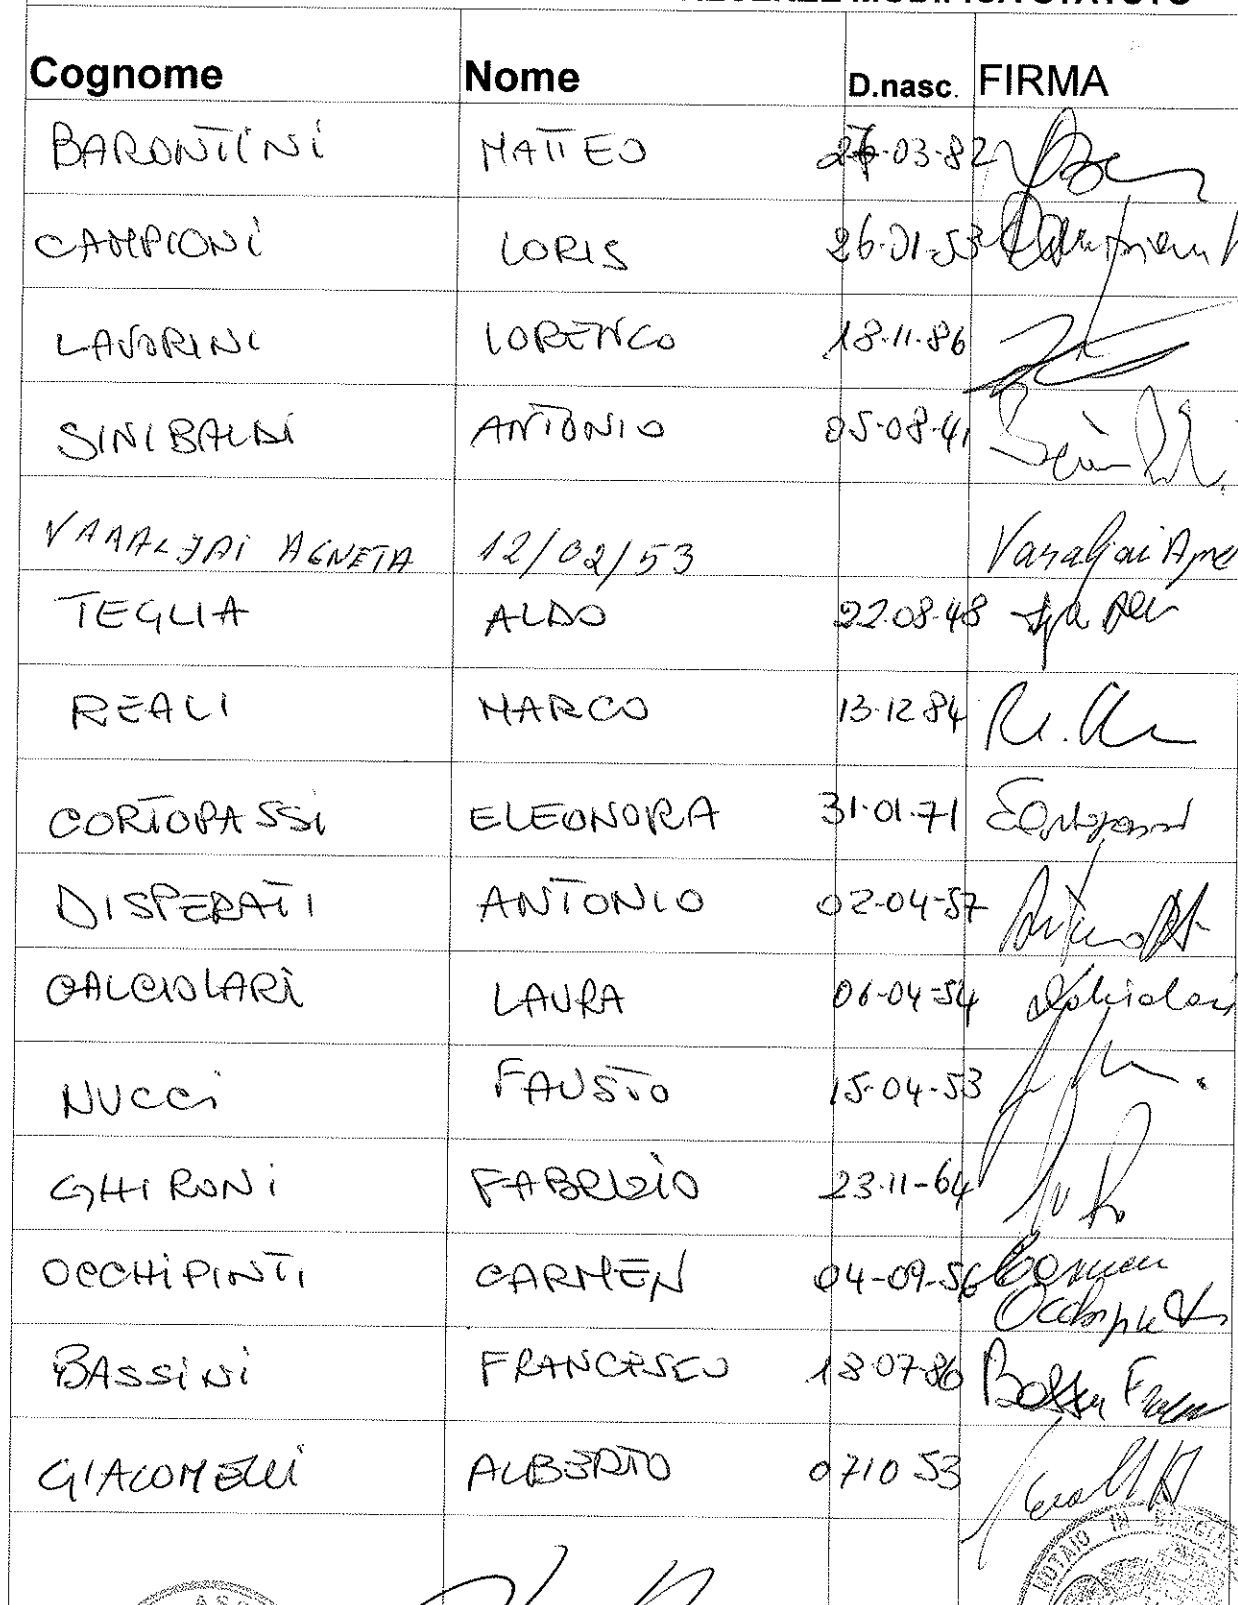 MODIFICA STATUTO
Cognome Nome D.nasc. FIRMA
BARONTINI MATTEO 03-82
CAMPIONI LORIS 26-01-53
LAVORINI LORENCO 18-11-86
SINIBALDI ANTONIO 05-08-41
VARALJAI AGNETA 12/02/53 Varaljai Agne
TEGLIA ALDO 22-08-48
REALI MARCO 13-12 84
CORTOPASSI ELEONORA 31-01-71
DISPERATI ANTONIO 02-04-57
CALCIOLARI LAURA 06-04-54
NUCCi FAUSTO 15-04-53
GHIRONI FABRIZIO 23-11-64
OCCHIPINTI CARMEN 04-09-56 Carmen
Occhipinti
BASSINI FRANCESCO 18-07-86
GIACOMELLI ALBERTO 0710 53
NOTAIO IN